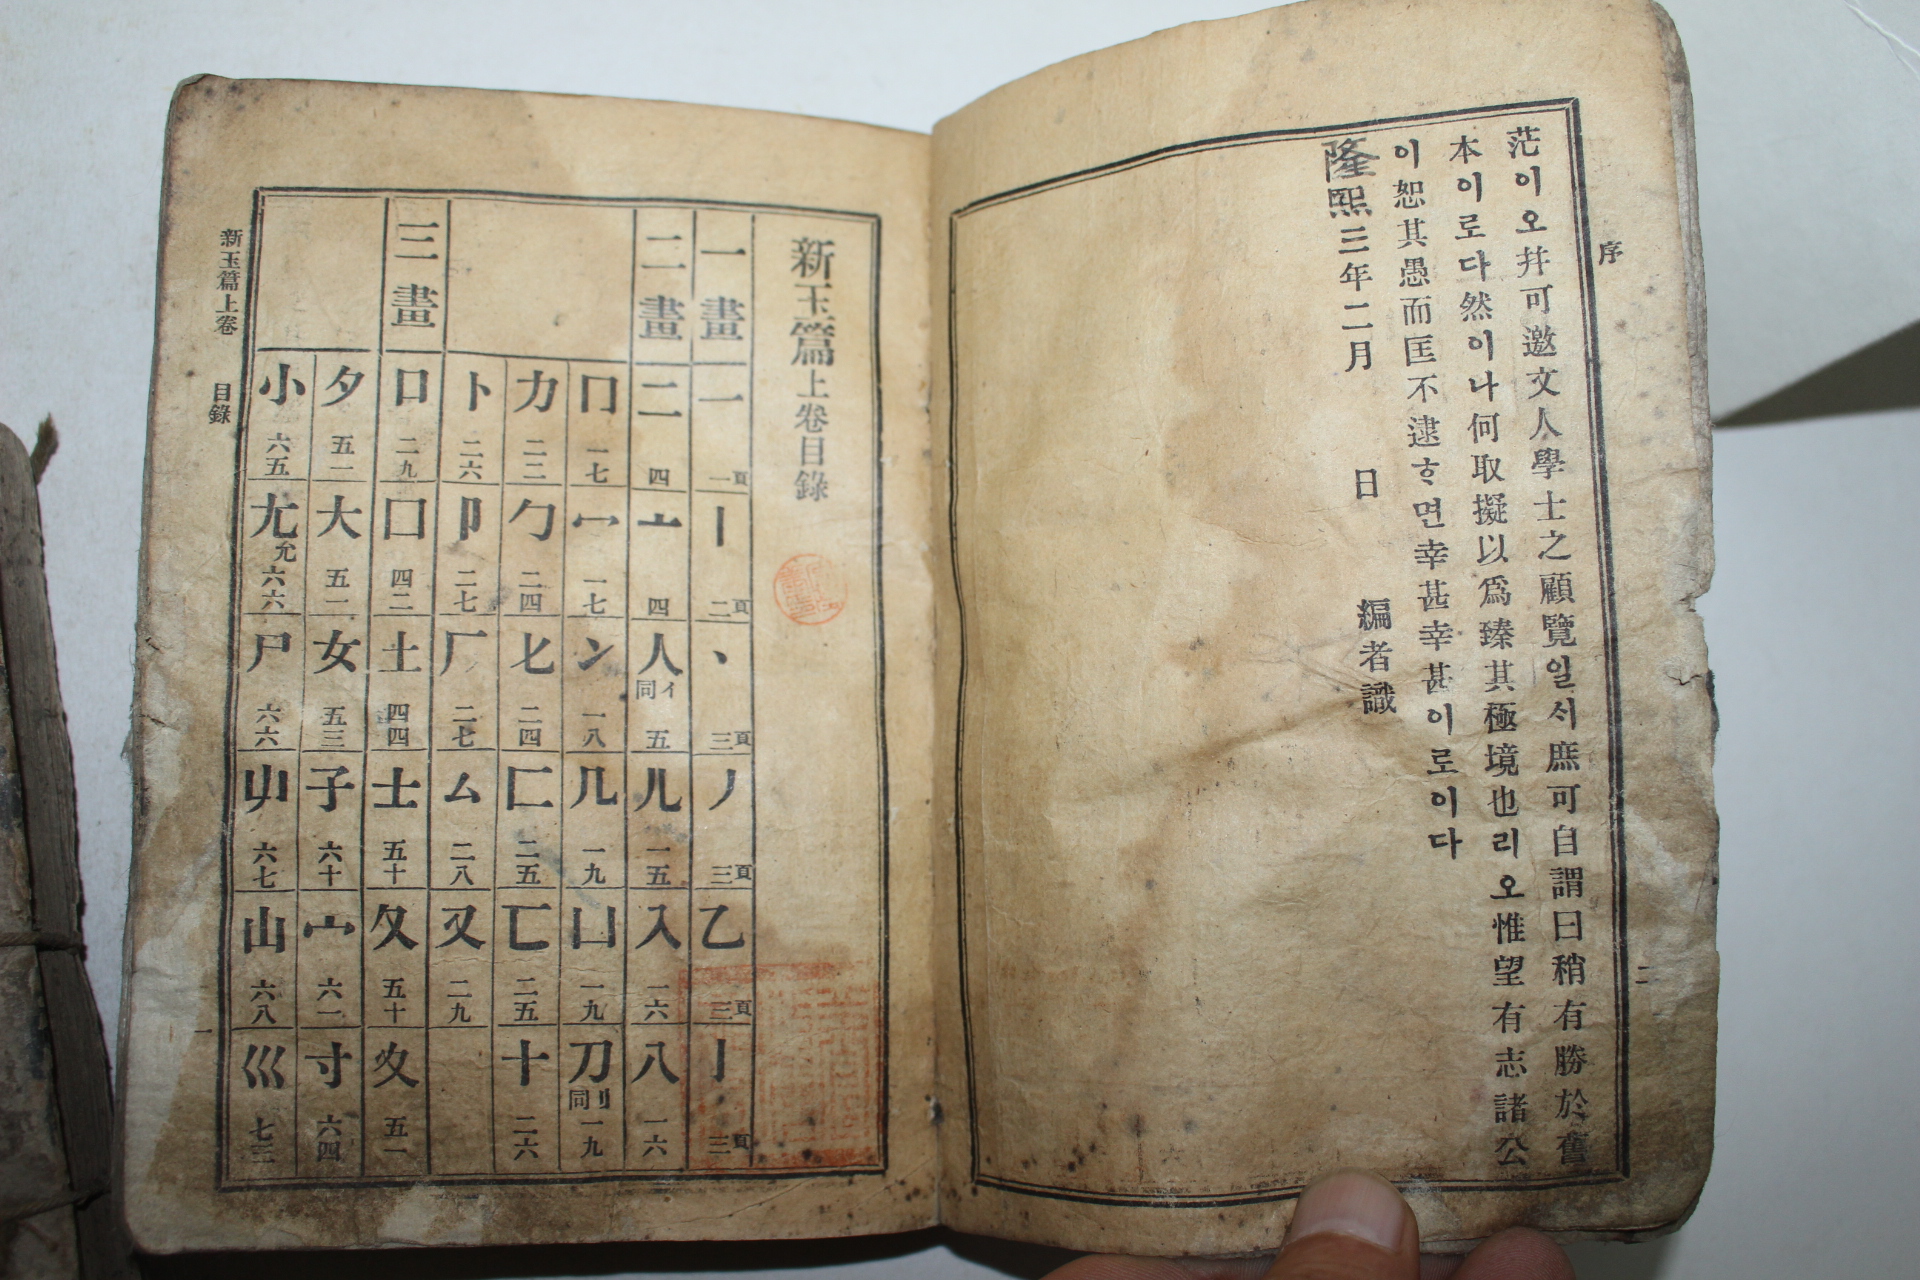 序
二
茫이오幷可邀文人學士之顧覽일시庶可自謂曰稍有勝於舊
本이로다然이나何取擬以爲臻其極境也리오惟望有志諸公
이恕其愚而匡不逮ᄒᆞ면幸甚幸甚이로이다
隆熙三年二月 日 編者識
新玉篇上卷目錄
一畫 一 一頁 丨 二頁 丶 三頁 丿 三頁 乙 三頁 亅 三頁
二畫 二 四 亠 四 人 亻同 五 儿 一五 入 一六 八 一六
冂 一七 冖 一七 冫 一八 几 一九 凵 一九 刀 刂同 一九
力 二二 勹 二四 匕 二四 匚 二五 匸 二五 十 二六
卜 二六 卩 二七 厂 二七 厶 二八 又 二九
三畫 口 二九 囗 四二 土 四四 士 五十 夂 五十 夊 五一
夕 五一 大 五二 女 五三 子 六十 宀 六一 寸 六四
小 六五 尢 允 六六 尸 六六 屮 六七 山 六八 巛 七三
新玉篇上卷 目錄 一